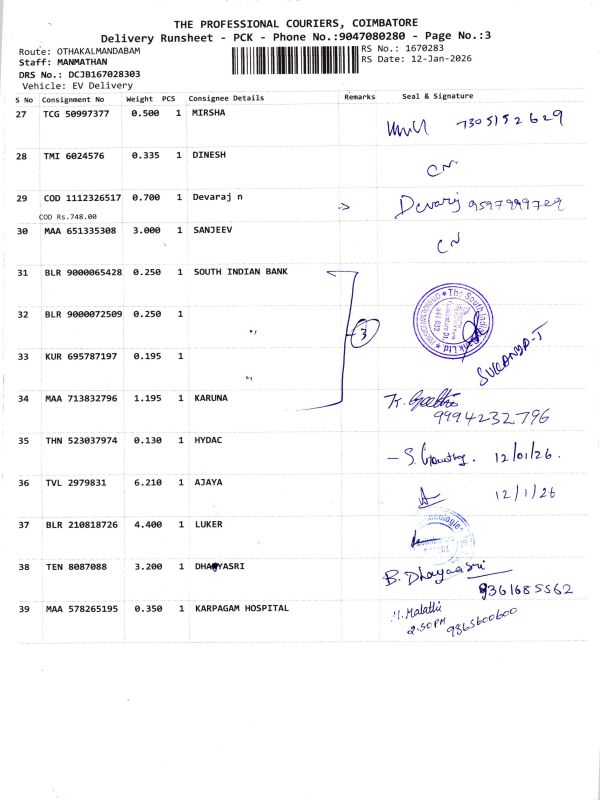 THE PROFESSIONAL COURIERS, COIMBATORE
Delivery Runsheet - PCK - Phone No.:9047080280 - Page No.:3
Route: OTHAKALMANDABAM
RS No.: 1670283
Staff: MANMATHAN
RS Date: 12-Jan-2026
DRS No.: DCJB167028303
Vehicle: EV Delivery
S No Consignment No Weight PCS Consignee Details Remarks Seal & Signature
27 TCG 50997377 0.500 1 MIRSHA 7305152629
28 TMI 6024576 0.335 1 DINESH CN
29 COD 1112326517 0.700 1 Devaraj n Devaraj 9597999729
COD Rs.748.00
30 MAA 651335308 3.000 1 SANJEEV CN
31 BLR 9000065428 0.250 1 SOUTH INDIAN BANK
32 BLR 9000072509 0.250 1 " 3
33 KUR 695787197 0.195 1 " SUKANYA-T
34 MAA 713832796 1.195 1 KARUNA K.
9994232796
35 THN 523037974 0.130 1 HYDAC 12/01/26.
36 TVL 2979831 6.210 1 AJAYA 12/1/26
37 BLR 210818726 4.400 1 LUKER
38 TEN 8087088 3.200 1 DHAYASRI B. Dhayaasri
9361685562
39 MAA 578265195 0.350 1 KARPAGAM HOSPITAL M. Malathi
2.50PM 9865600600